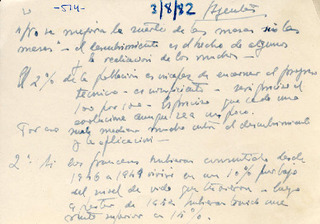 -514- 3/8/82
1/No se mejora la suerte de las masas sin las
masas - el descubrimiento es el hecho de algunos
y la realización de los muchos -
El 2% de la población es incapaz de encarnar el progreso
técnico - es insuficiente - sería preciso el
100 por 100 - Es preciso que cada uno
evolucione aunque sea un poco.
Por eso media mucho entre el descubrimiento
y la aplicación -
2º Si los franceses hubieran consentido desde
1946 a 1949 vivir en un 10% por bajo
del nivel de vida que tuvieron - luego
a partir de 1950 hubieran tenido una
superior en 15%.